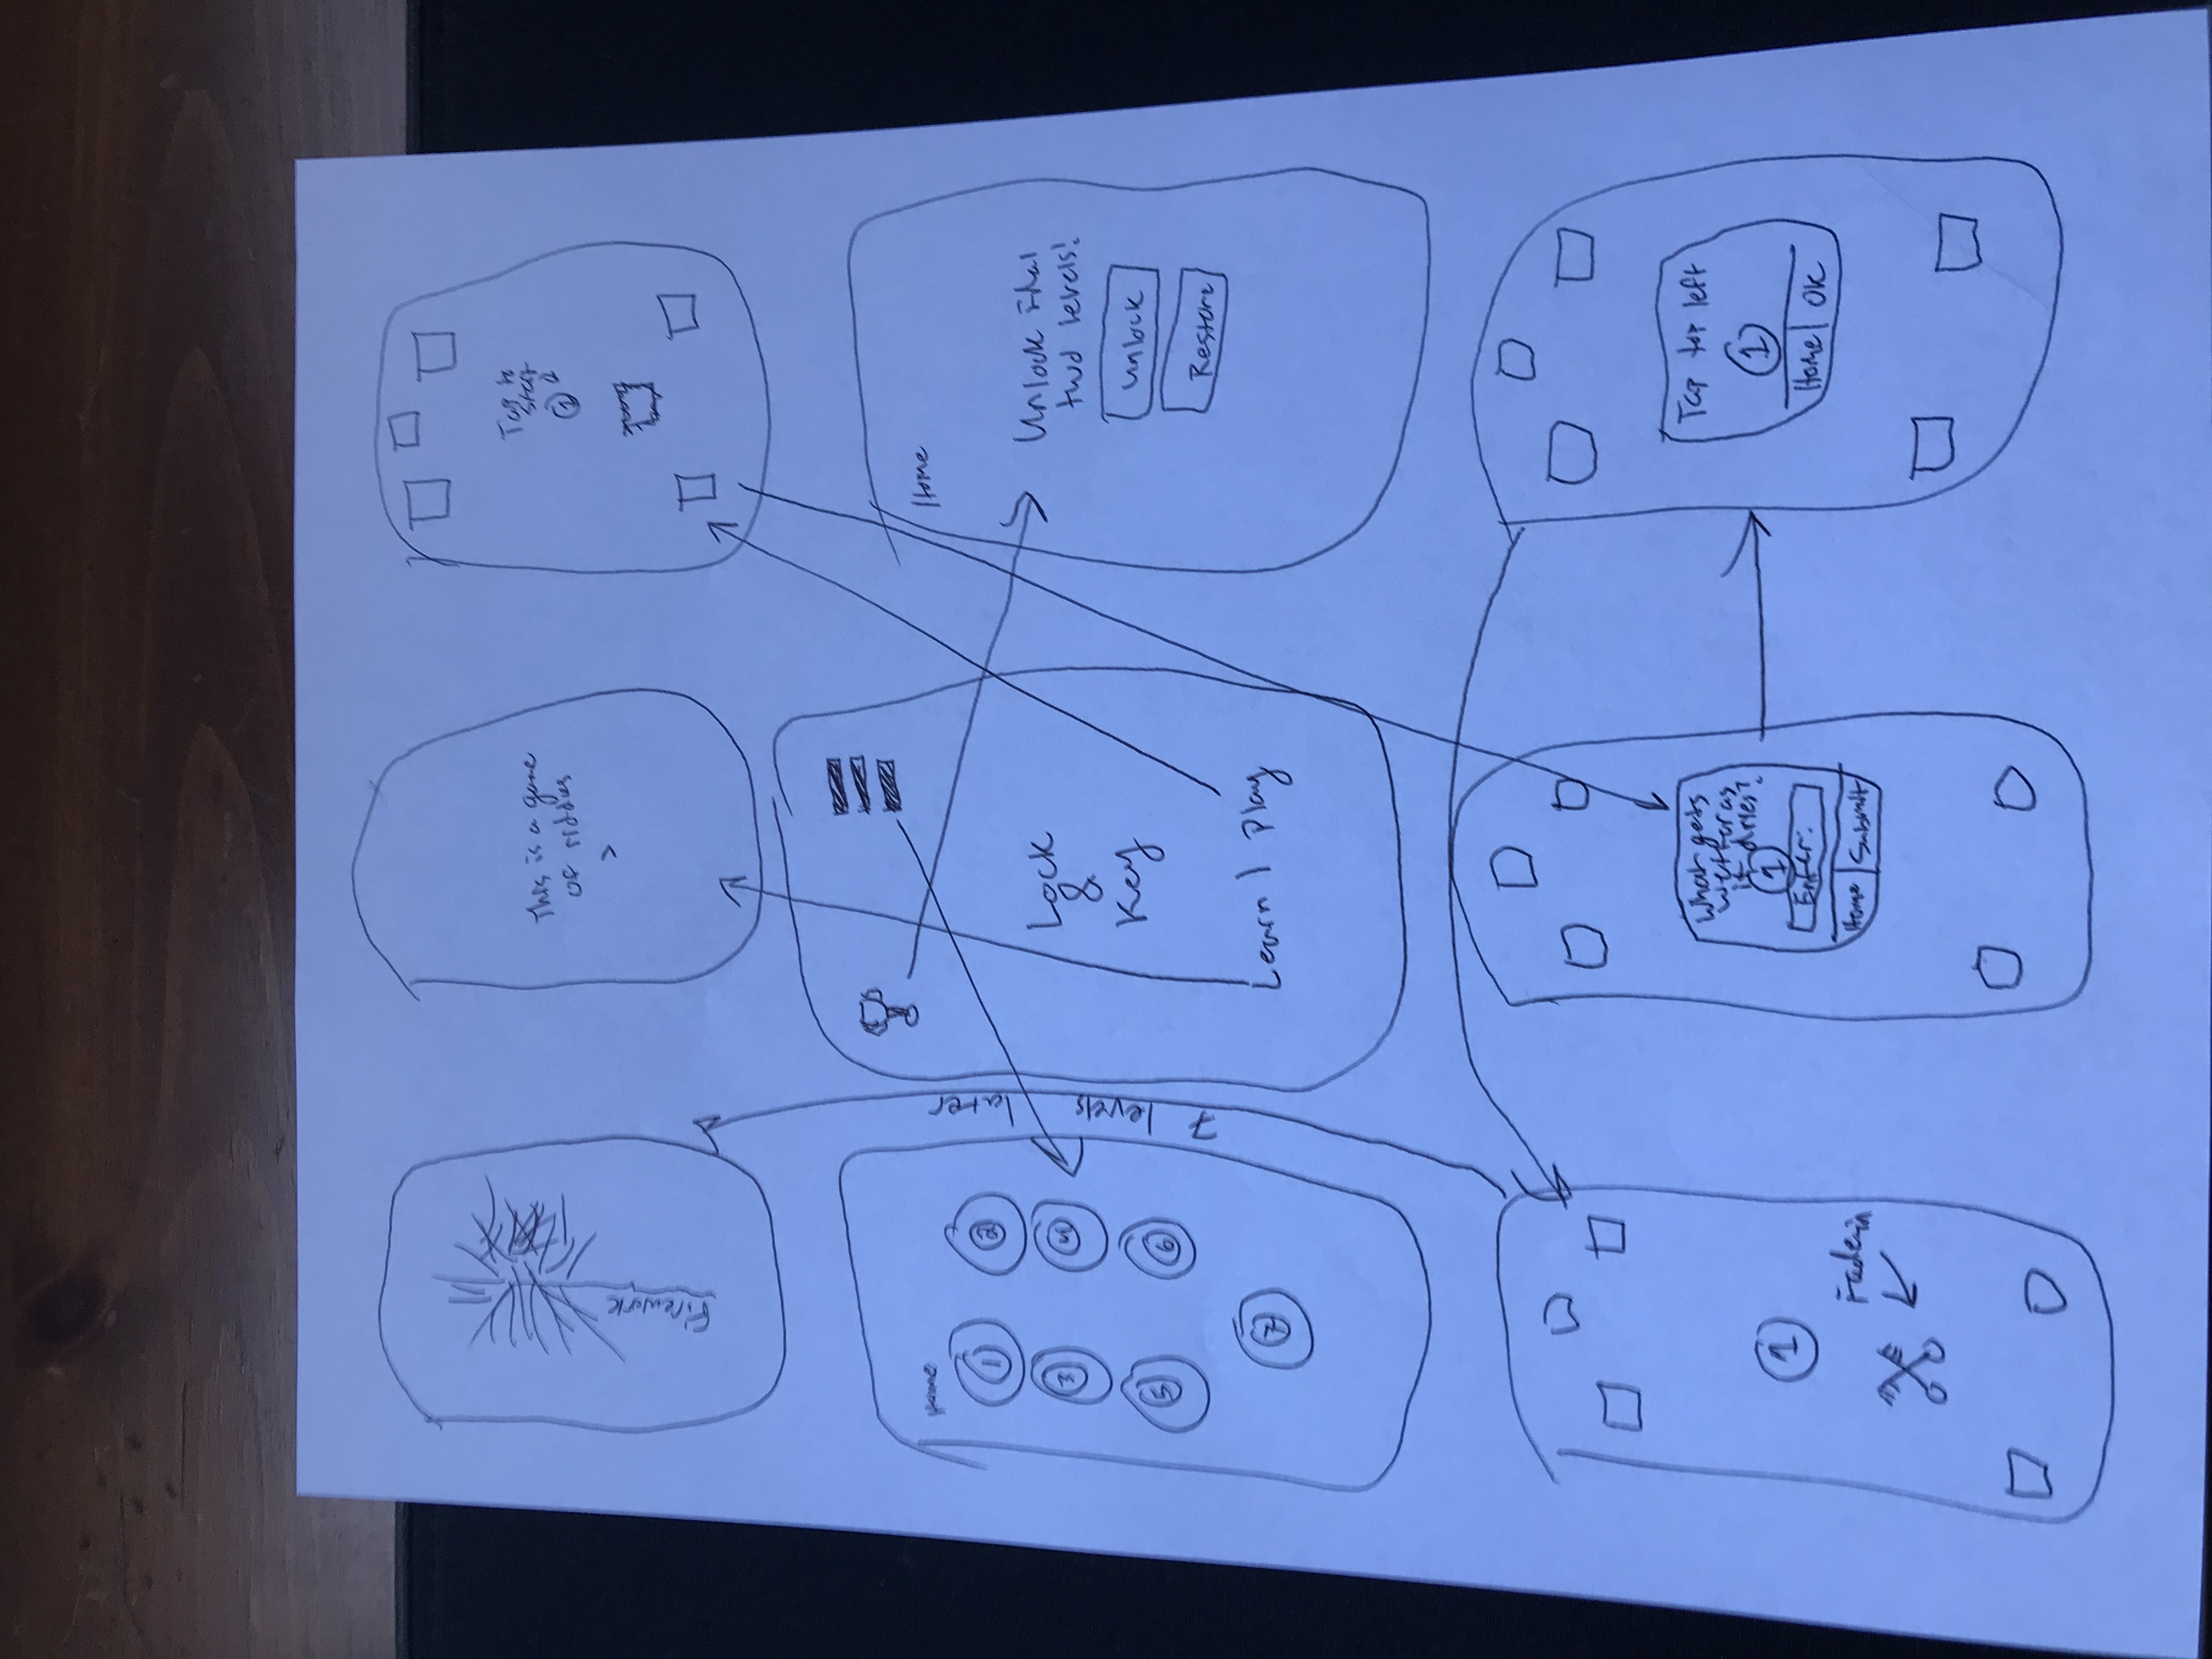 Firework
This is a game
of riddles
>
Tap to
start
1
Home
1
2
3
4
5
6
7
7 levels later
Lock
&
Key
Learn | Play
Home
Unlock Final
two levels!
Unlock
Restore
1
Fade in
What gets
wetter as
it dries?
1
Enter:
Home | Submit
Tap top left
1
Home | OK